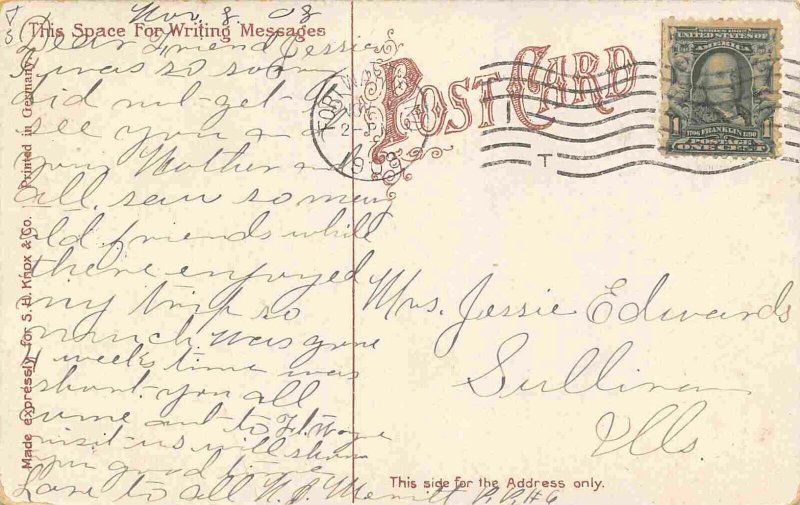 Nov. 8. 08
This Space For Writing Messages
Dear Friend Jessie
I was so sorry
did not get to
see you and
your Mother and
all. saw so many
old friends while
there enjoyed
my trip so
much. was gone
4 weeks time was
short. you all
come out to Ft. Wayne
visit us will show
you good time
Love to all Merritt R.R. #6
Made expressly for S. H. Knox & Co. Printed in Germany.
POST CARD
FORT WAYNE
2-P
1908
T
SERIES 1902
UNITED STATES OF
AMERICA
1706 FRANKLIN 1790
1 1
POSTAGE
ONE CENT
Mrs. Jessie Edwards
Sullivan
Ills.
This side for the Address only.